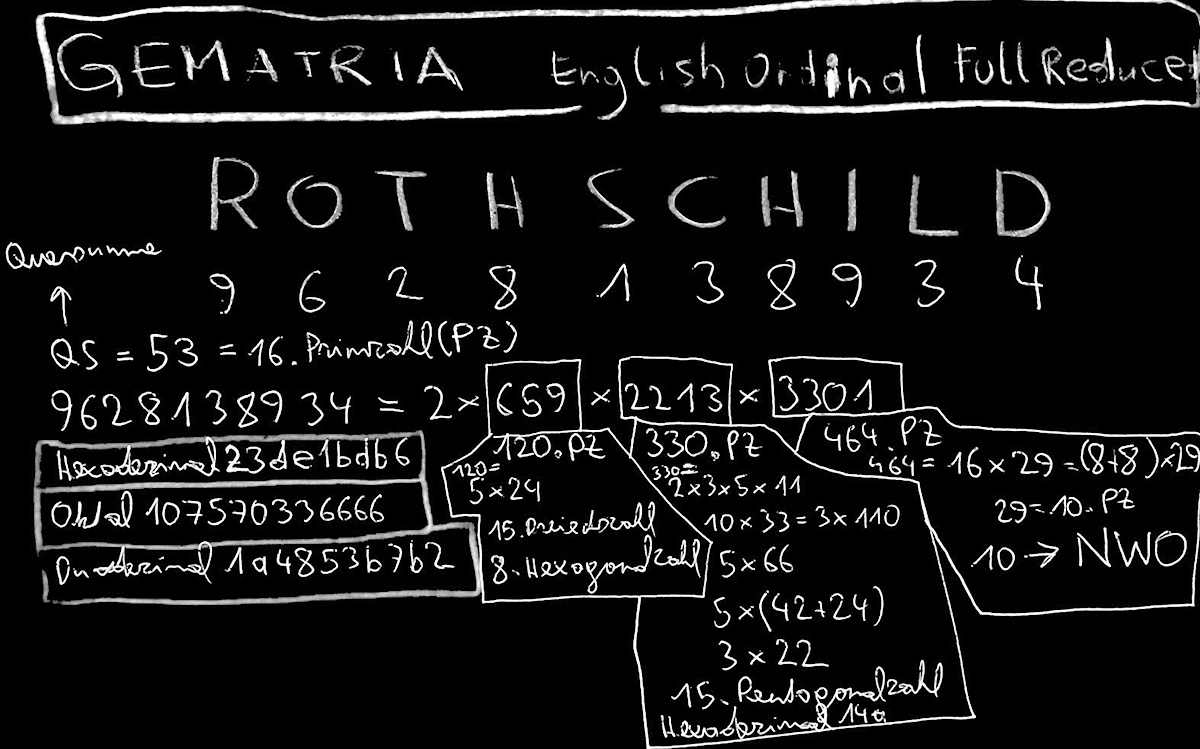 GEMATRIA English Ordinal Full Reduced
ROTHSCHILD
Quersumme
9 6 2 8 1 3 8 9 3 4
QS = 53 = 16. Primzahl (PZ)
9628138934 = 2 × 659 × 2213 × 3301
Hexadezimal 23de1bdb6
Oktal 107570336666
Duodezimal 1a4853b7b2
120. PZ
120=
5 × 24
15. Dreieckszahl
8. Hexogonalzahl
330. PZ
330=
2 × 3 × 5 × 11
10 × 33 = 3 × 110
5 × 66
5 × (42 + 24)
3 × 22
15. Pentagonalzahl
Hexadezimal 14a
464. PZ
464 = 16 × 29 = (8+8) × 29
29 = 10. PZ
10 → NWO